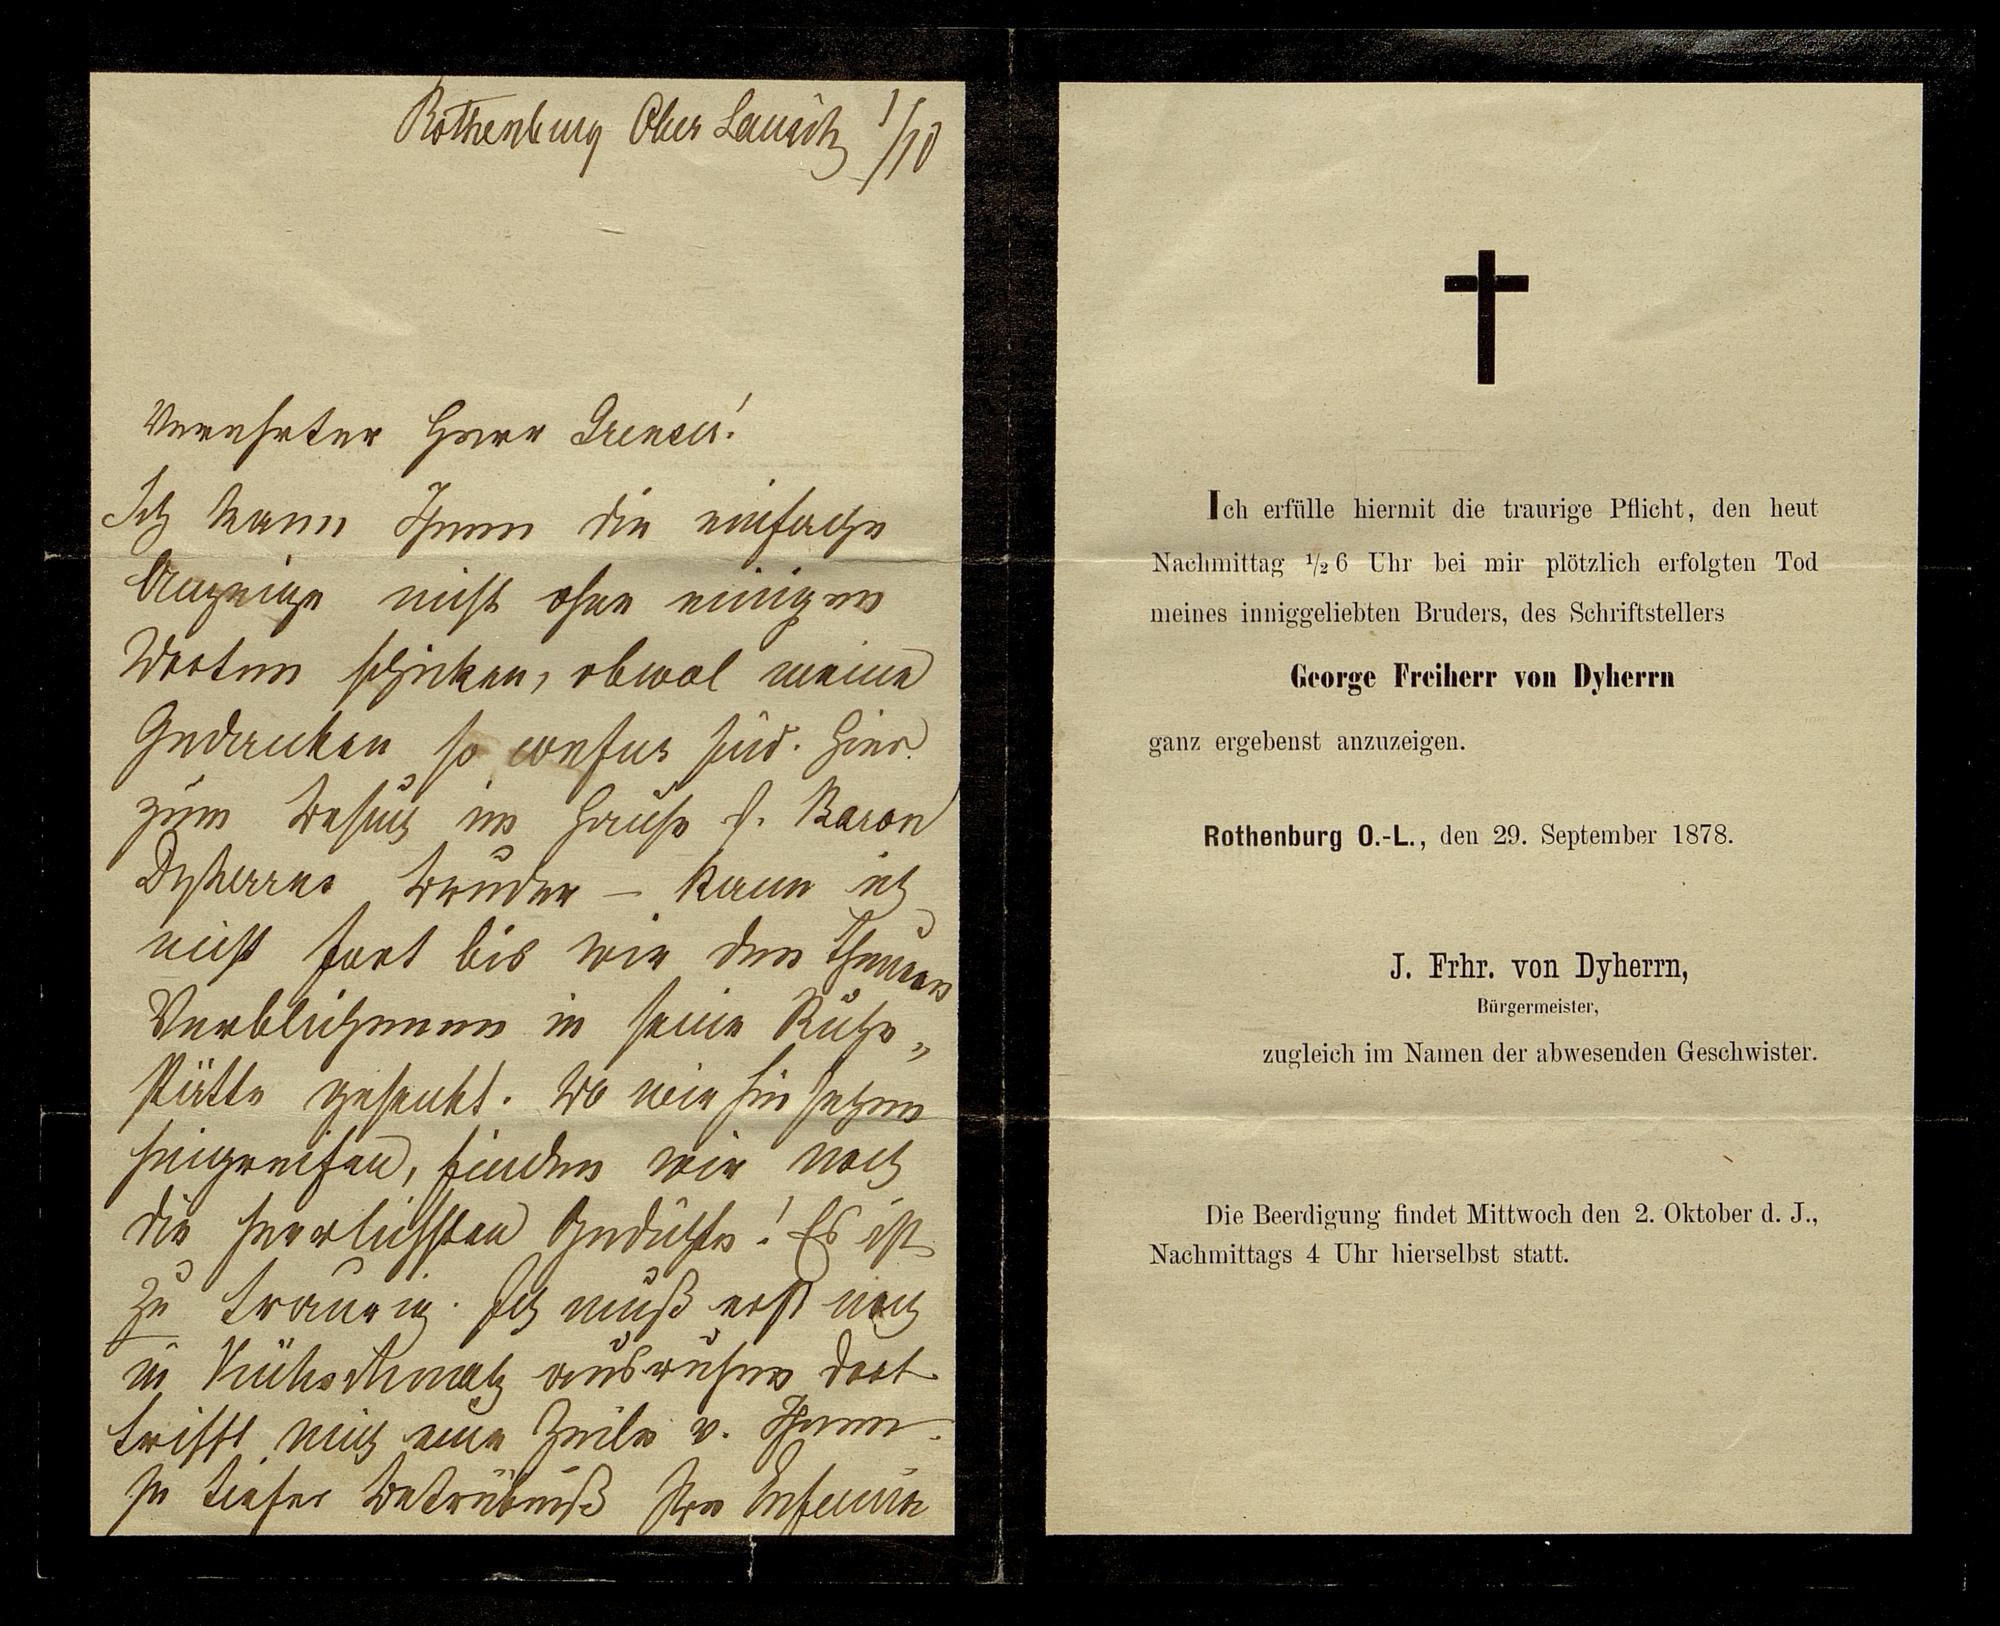 Rothenburg Ober Lausitz 1/10
Verehrter Herr
Ich kann Ihnen die einfache
Anzeige nicht ohne einigen
Worten schicken, obwol meine
Gedanken so confus sind. Hier
zum Besuch im Hause d. Baron
Dyherrns Bruder – kann ich
nicht fort bis wir den Theuren
Verblichenen in seine Ruhe„
stätte gesenkt. Wo wir hin sehen
hingreifen, finden wir noch
die herrlichsten Gedichte! Es ist
zu traurig. Ich muß erst noch
in ausruhen dort
trifft mich eine Zeile v. Ihnen.
In tiefer Betrübniß
Ich erfülle hiermit die traurige Pflicht, den heut
Nachmittag ½ 6 Uhr bei mir plötzlich erfolgten Tod
meines inniggeliebten Bruders, des Schriftstellers
George Freiherr von Dyherrn
ganz ergebenst anzuzeigen.
Rothenburg O.-L., den 29. September 1878.
J. Frhr. von Dyherrn,
Bürgermeister,
zugleich im Namen der abwesenden Geschwister.
Die Beerdigung findet Mittwoch den 2. Oktober d. J.,
Nachmittags 4 Uhr hierselbst statt.